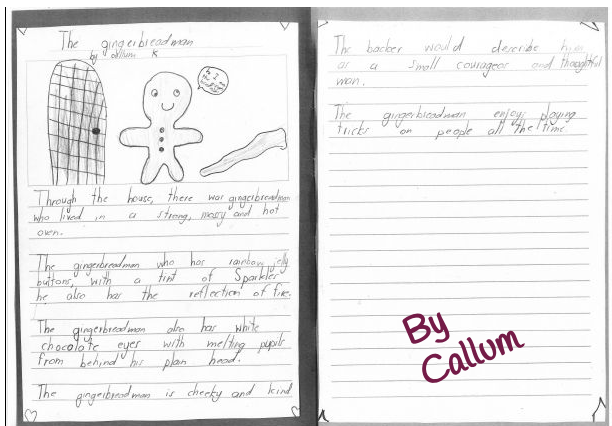 The gingerbreadman
by callum K
Through the house, there was gingerbreadman
who lived in a strong, messy and hot
oven.
The gingerbreadman who has rainbow jelly
buttons, with a tint of Sparkles
he also has the reflection of fire.
The gingerbreadman also has white
chocolate eyes with melting pupils
from behind his plain head.
The gingerbreadman is cheeky and kind
The backer would describe him
as a small courageos and thoughtful
man.
The gingerbreadman enjoys playing
tricks on people all the time
By
Callum